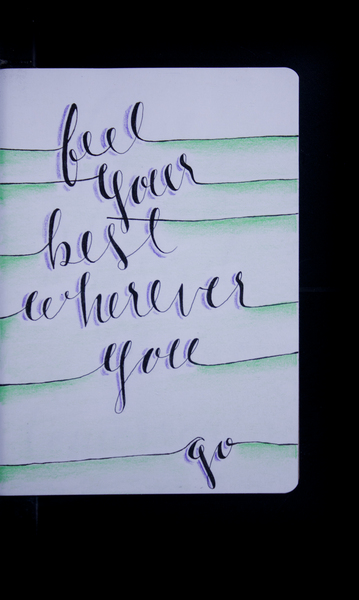 feel
your
best
wherever
you
go